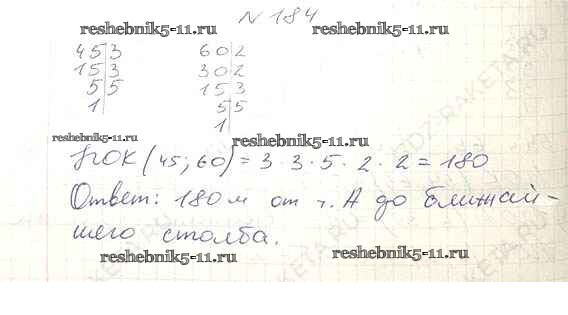 N 184
reshebnik5-11.ru reshebnik5-11.ru
45 3 60 2
15 3 30 2
5 5 15 3
1 5 5
1
reshebnik5-11.ru reshebnik5-11.ru
НОК (45; 60) = 3 · 3 · 5 · 2 · 2 = 180
Ответ: 180 м от т. А до ближай-
шего столба.
reshebnik5-11.ru reshebnik5-11.ru